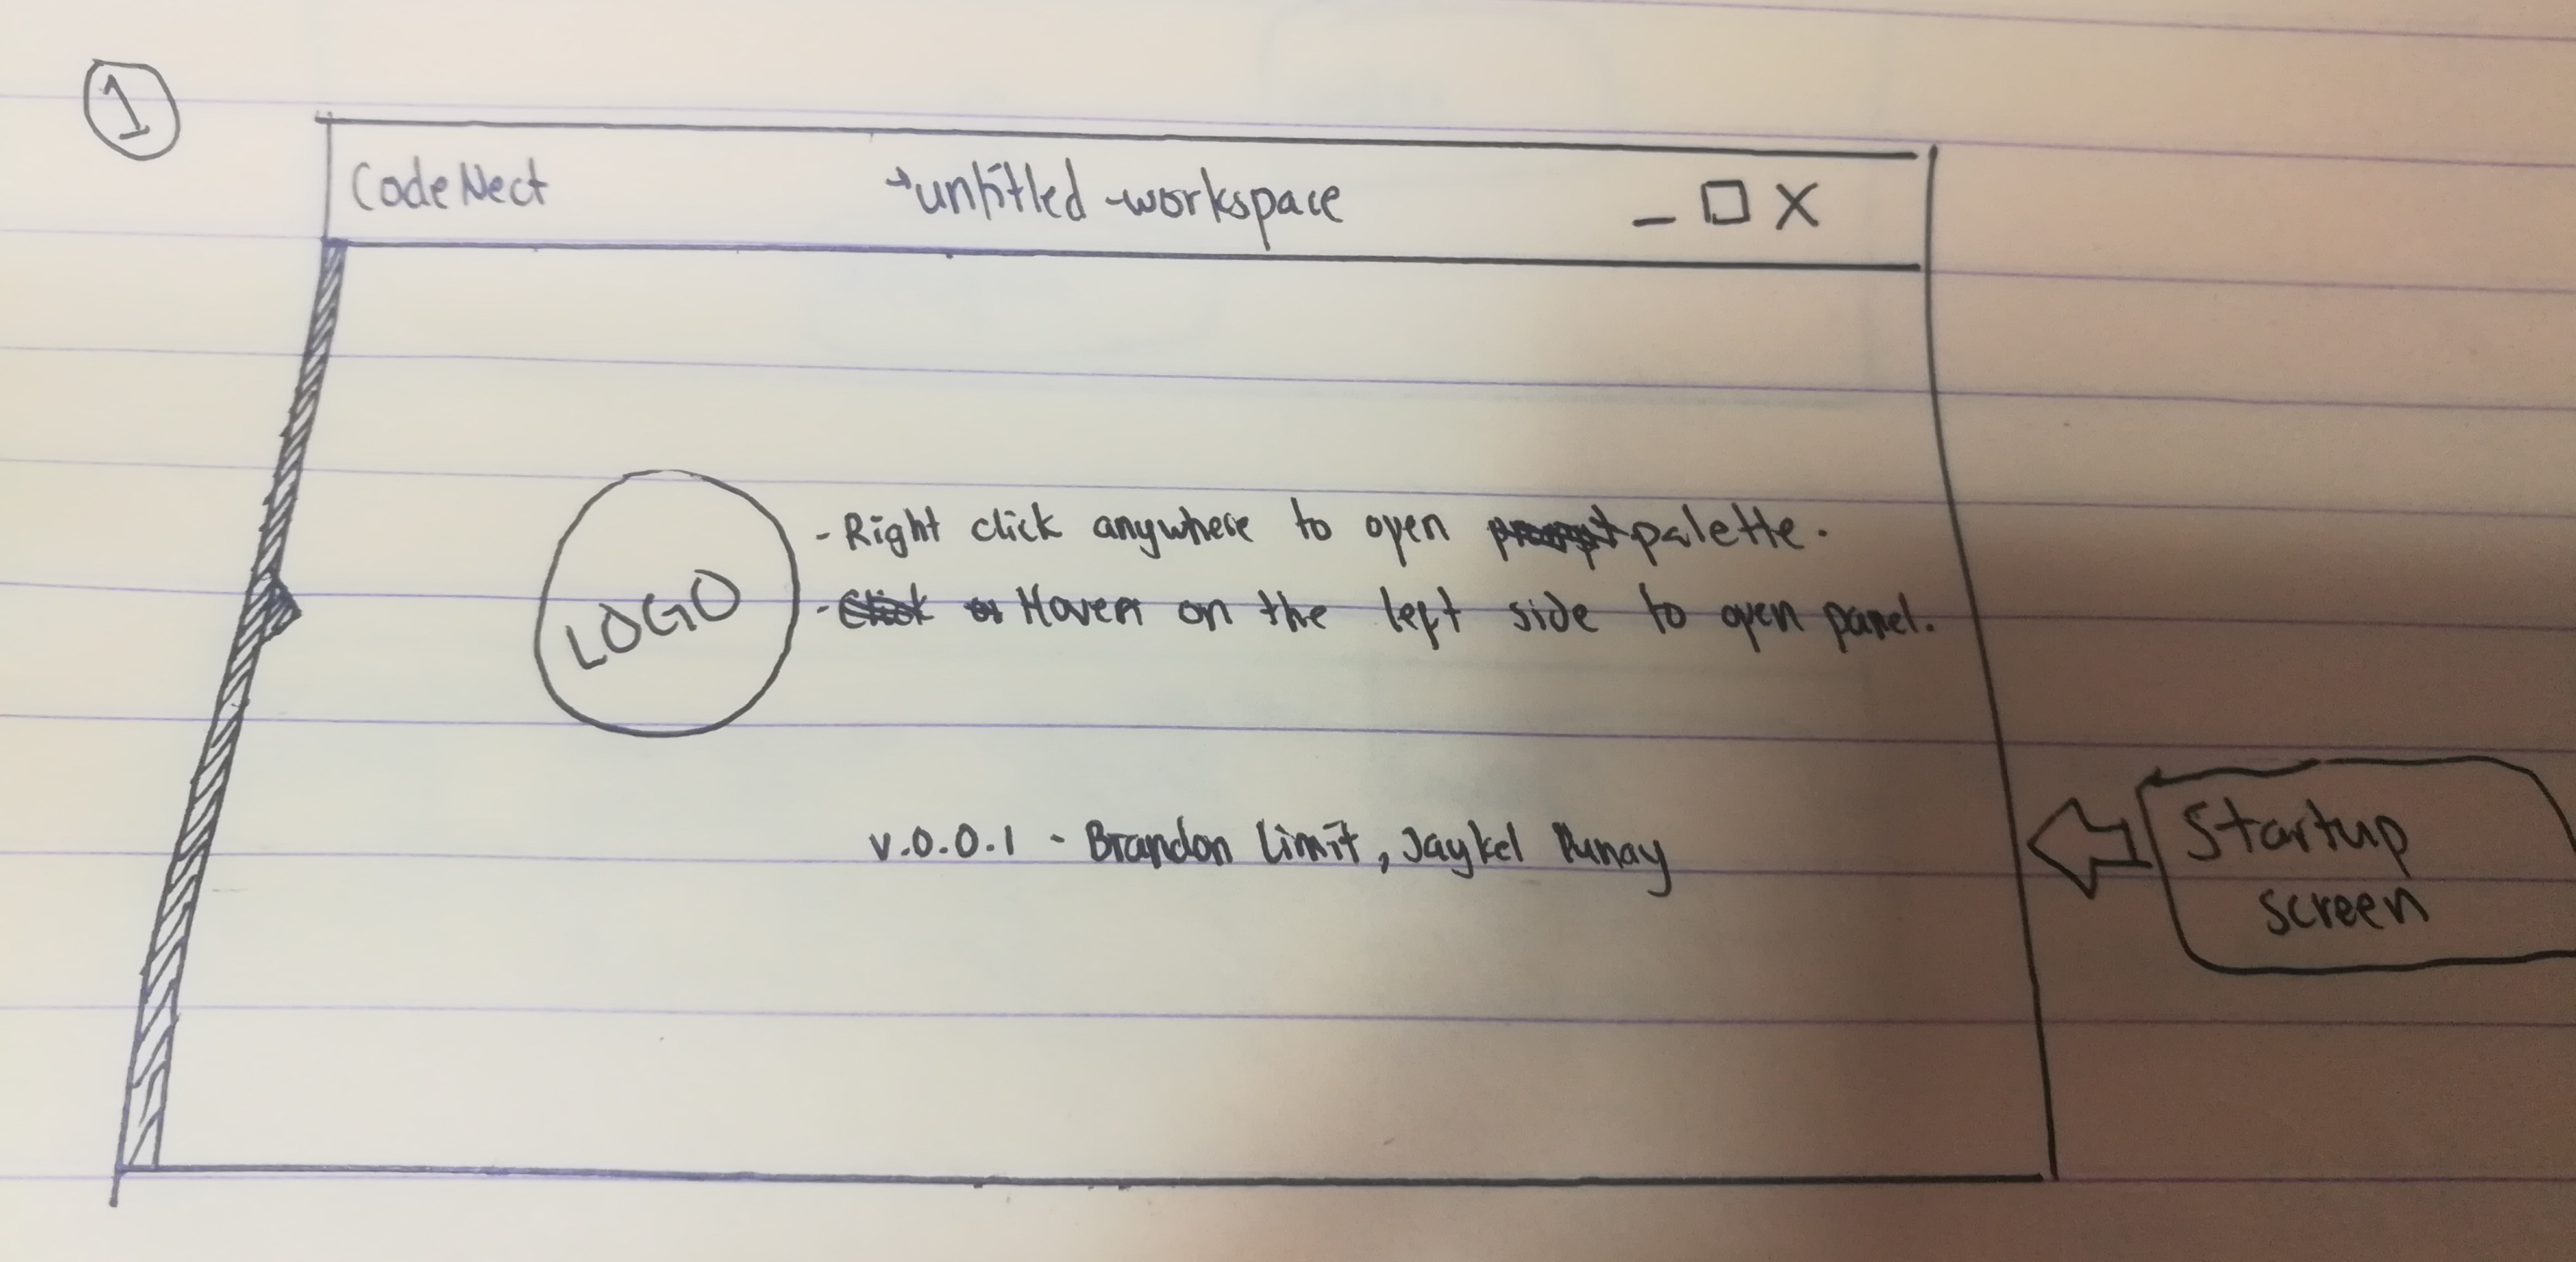 1
CodeNect
*untitled-workspace
_ □ X
- Right click anywhere to open palette.
- Hover on the left side to open panel.
LOGO
v.0.0.1 - Brandon Limit, Jaykel Punay
Startup
screen